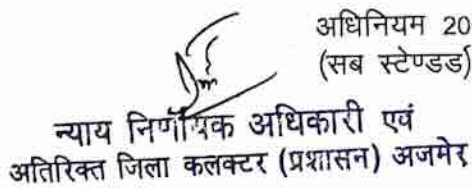 अधिनियम 20
(सब स्टेण्डर्ड)
न्याय निर्णायक अधिकारी एवं
अतिरिक्त जिला कलक्टर (प्रशासन) अजमेर